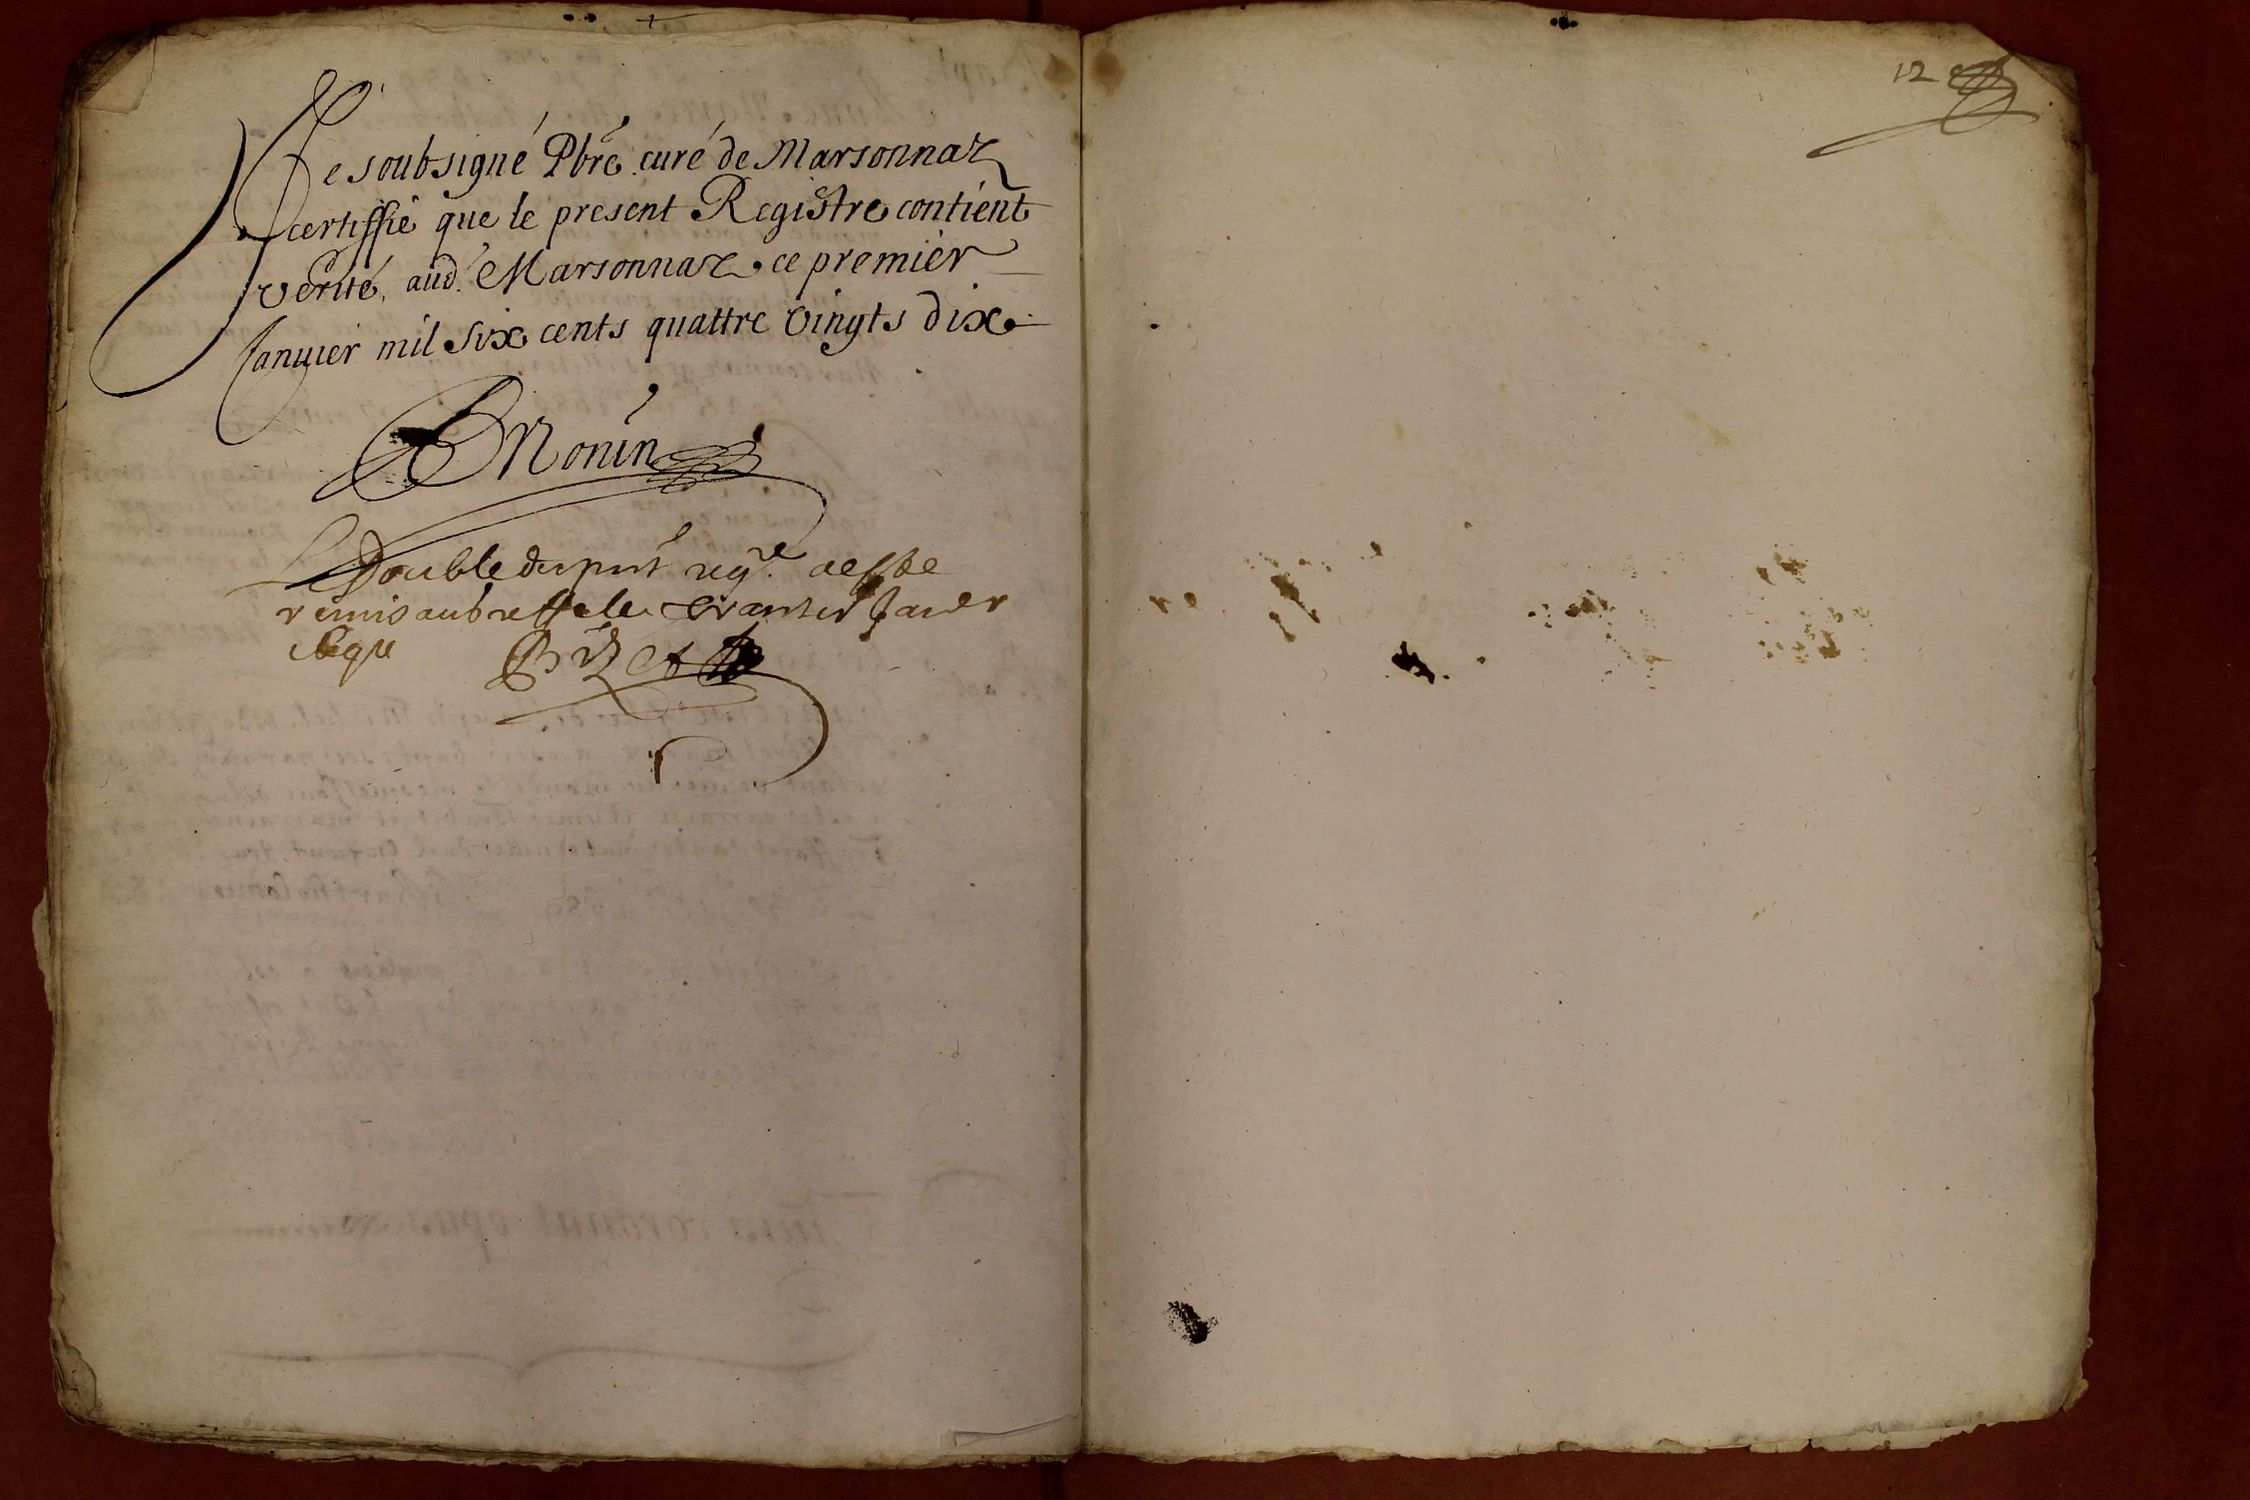 Je soubsigné Pbrē curé de Marsonnaz
certiffie que le present Registre contient
verité, aud. Marsonnaz ce premier
Januier mil six cents quattre vingts dix
BMonin
Double du pnt regre. a esté
remis au greffe le Januer
Bizet
12